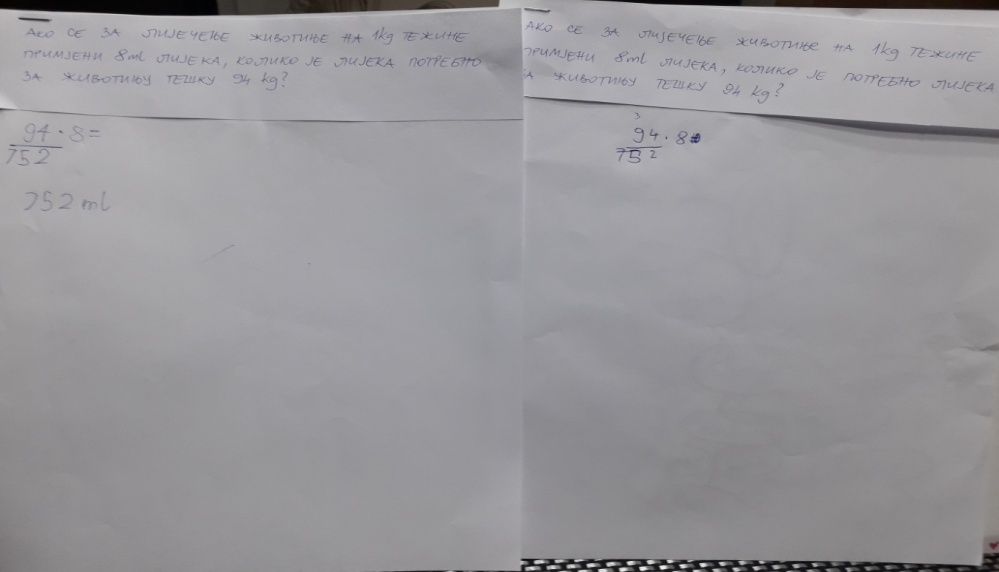 АКО СЕ ЗА ЛИЈЕЧЕЊЕ ЖИВОТИЊЕ НА 1kg ТЕЖИНЕ
ПРИМЈЕНИ 8ml ЛИЈЕКА, КОЛИКО ЈЕ ЛИЈЕКА ПОТРЕБНО
ЗА ЖИВОТИЊУ ТЕШКУ 94 kg?
94 · 8 =
752
752 ml
АКО СЕ ЗА ЛИЈЕЧЕЊЕ ЖИВОТИЊЕ НА 1kg ТЕЖИНЕ
ПРИМЈЕНИ 8ml ЛИЈЕКА, КОЛИКО ЈЕ ПОТРЕБНО ЛИЈЕКА
ЗА ЖИВОТИЊУ ТЕШКУ 94 kg?
3
94 · 8 =
752